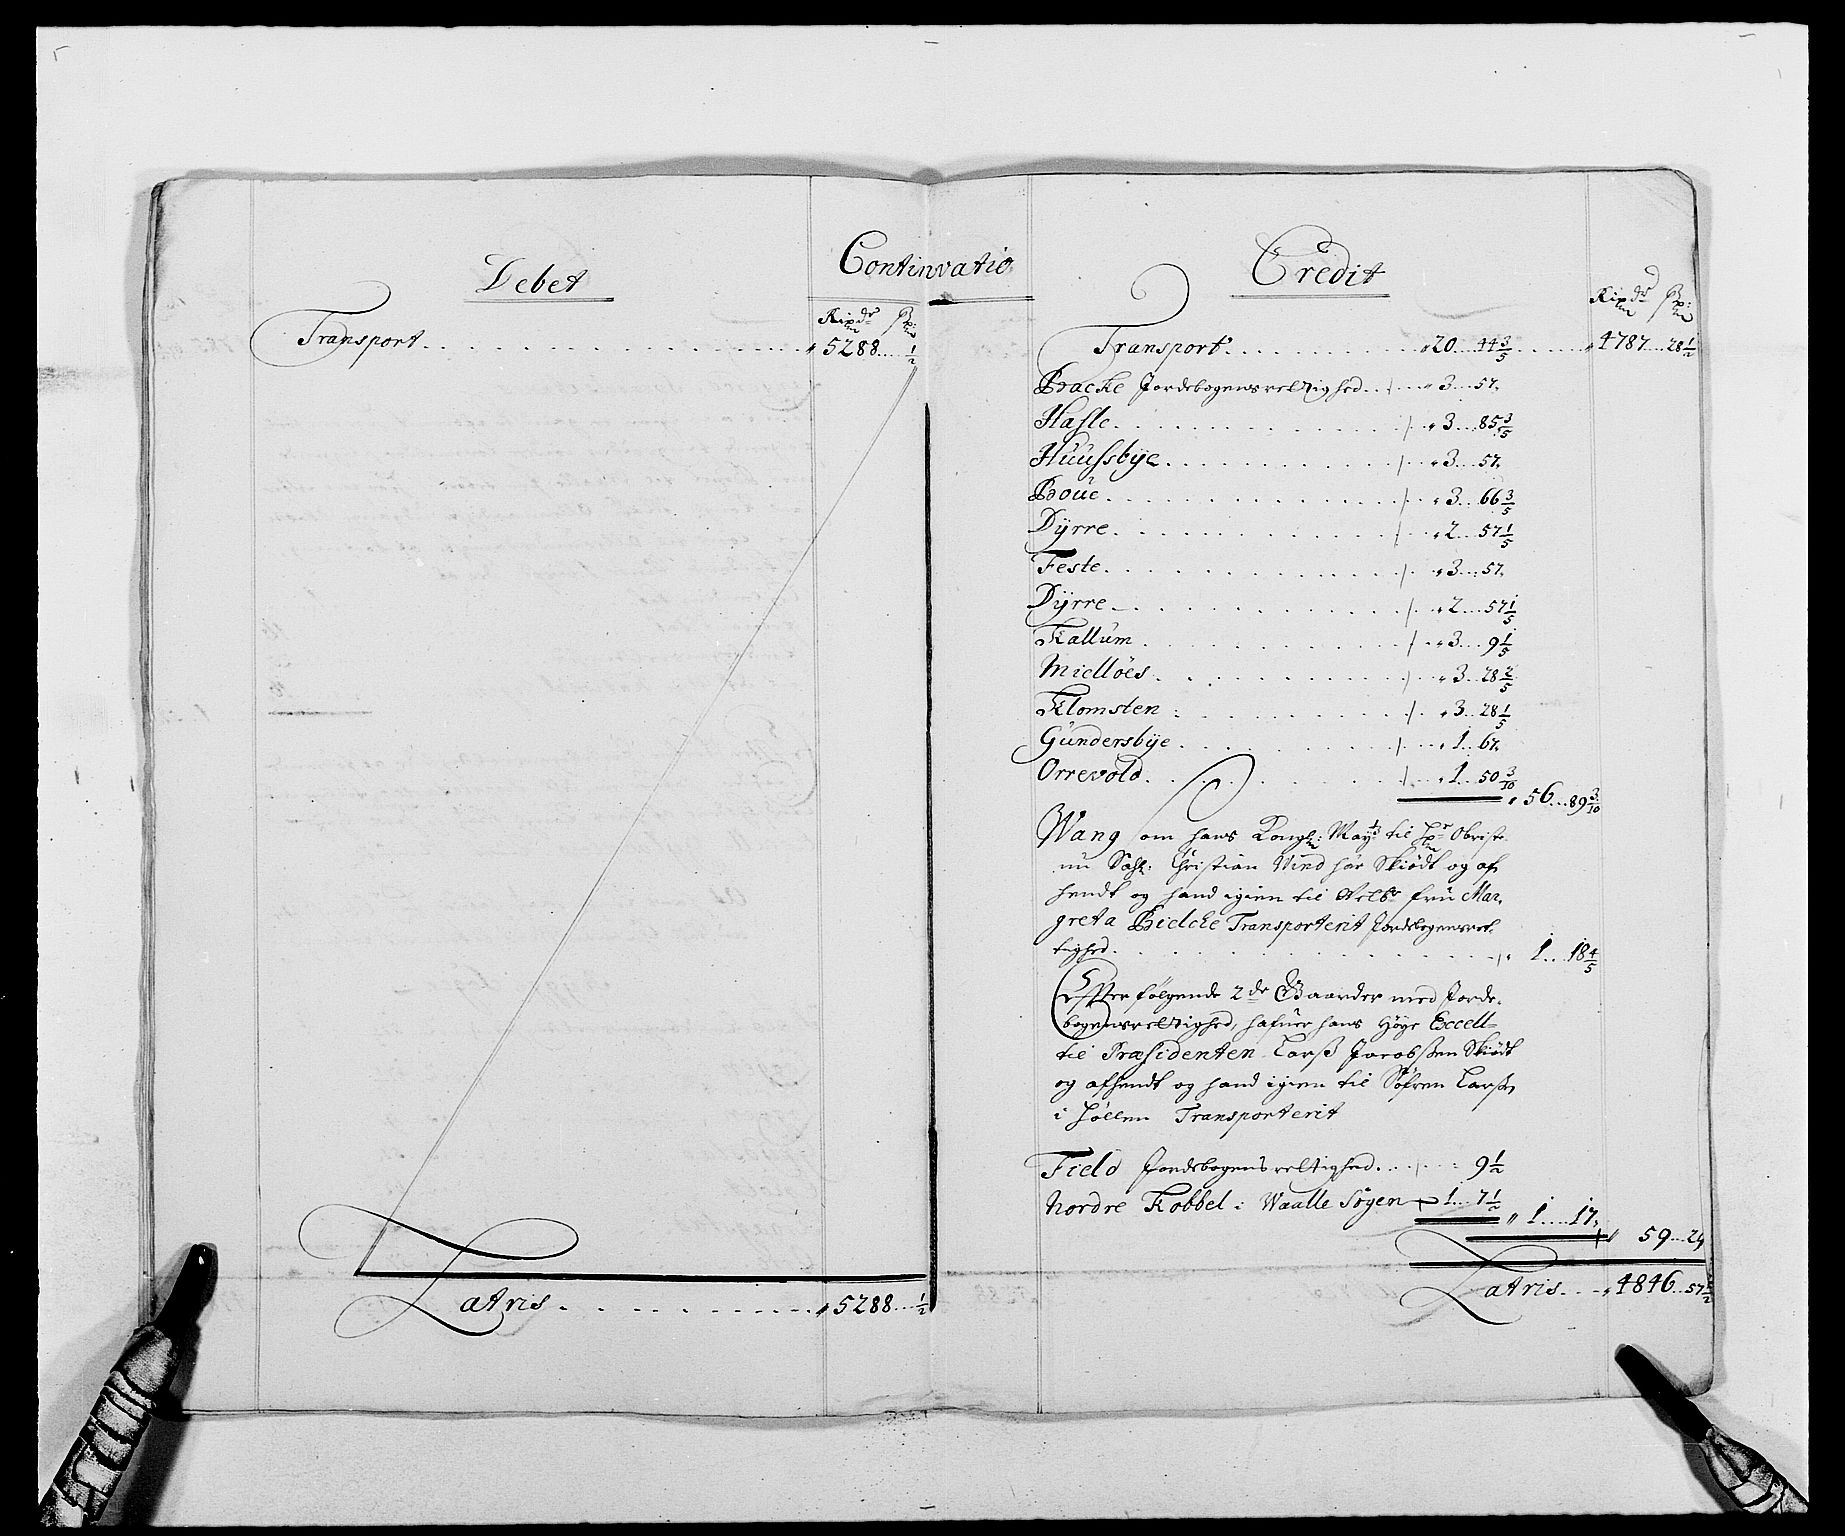 Continvatio
Debet
Rixdr ß
Transport . . . . . . . . . . . 5288 .... ½
Latris . . . . . . . . . 5288 ... ½
Credit
Rixdr ß
Transport . . . . . . . . . 20 ... 44 3/5 ..... 4787 ... 28 ½
Backe Jordebogensrettighed . . 3 ... 57.
Hasle . . . . . . . . . 3 ... 85 3/5
Huussbye . . . . . . . . . 3 ... 57.
Boue . . . . . . . . . 3 ... 66 3/5
Dÿrre . . . . . . . . . 2 ... 57 1/5
Feste . . . . . . . . . 3 ... 57.
Dÿrre . . . . . . . . . 2 ... 57 1/5
Kallum . . . . . . . . . 3 ... 9 1/5
Miellöes . . . . . . . . . 3 ... 28 2/5
Klomsten . . . . . . . . . 3 ... 28 1/5
Gundersbÿe . . . . . . . . . 1 ... 67.
Orrevold . . . . . . . . . 1 ... 50 3/10
56 ... 89 3/10
Wang som hans Kongl: Mayts til Hr Obriste
nu Sahl: Christian Vind har Skiödt og af
hendt og hand igien til Velbr fru Mar,
greta Bielcke Transporterit Jordebogensret,
tighed . . . . . . . . . 1 ... 18 4/5
Efter følgende 2de Gaarder med Jorde,
bogensrettighed, hafuer hans Höye Excell=
til Præsidenten Larß Jacobßen Skiödt
og afhendt og hand igien til Söfren Larß,
i Hollen Transporterit
Field Jordebogens rettighed . . . 9 ½
Nordre Kobbel i Waalle Sogen 1 ... 7 ½
1 .... 17,
59 ... 29
Latris . . . 4846 .. 57 ½